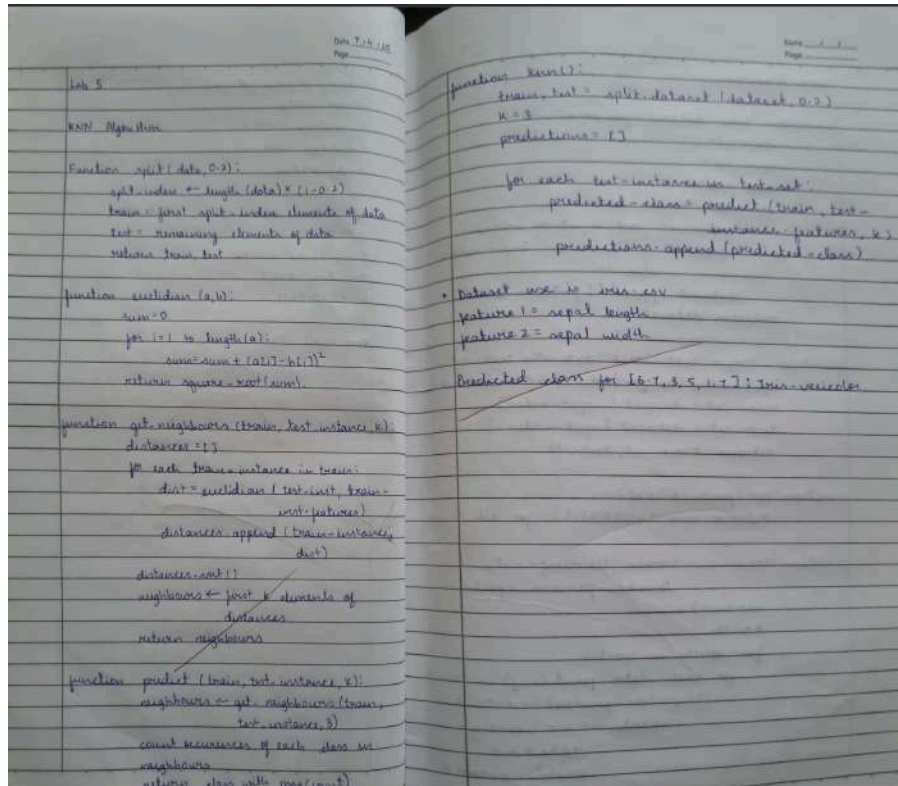 Date 7/4/25
Page
Lab 5
KNN Algorithm
Function split (data, 0.2):
split_index ← length (data) * (1-0.2)
train = first split_index elements of data
test = remaining elements of data
return train, test
function euclidian (a, b):
sum = 0
for i=1 to length (a):
sum = sum + (a[i] - b[i])²
return square-root (sum).
function get_neighbours (train, test_instance, k):
distances = []
for each train_instance in train:
dist = euclidian (test-inst, train-
inst.features)
distances.append (train-instance,
dist)
distances.sort ()
neighbours ← first k elements of
distances
return neighbours
function predict (train, test_instance, k):
neighbours ← get_neighbours (train,
test_instance, 3)
count occurences of each class in
neighbours
return class with max(count)
Date / /
Page
function knn():
train, test = split_dataset (dataset, 0.2)
k = 3
predictions = []
for each test-instance in test-set:
predicted-class = predict (train, test-
instance.features, k)
predictions.append (predicted-class)
• Dataset use is iris.csv
feature 1 = sepal length
feature 2 = sepal width
Predicted class for [6.7, 3, 5, 1.7] : Iris-vericolor